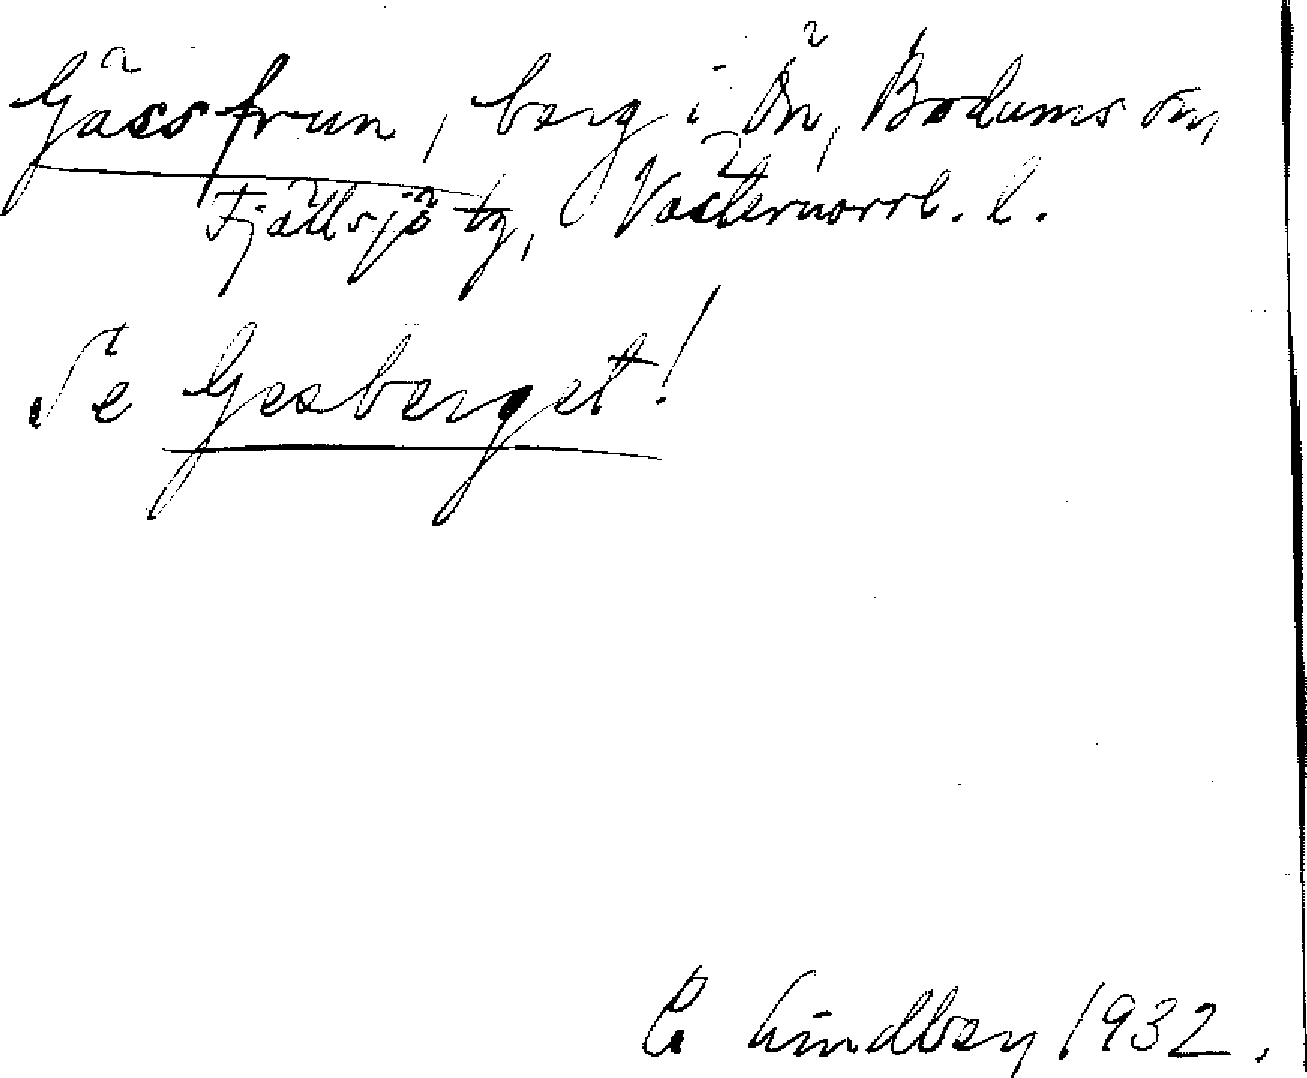 Gässfrun, berg i Ön, Bodums sn,
Fjällsjö tg, Västernorrl. l.
Se Gesberget!
C Lindberg 1932.